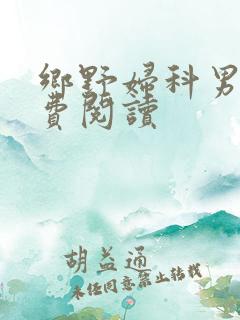 鄉野婦科男
費閱讀
胡益通
未經同意禁止轉載